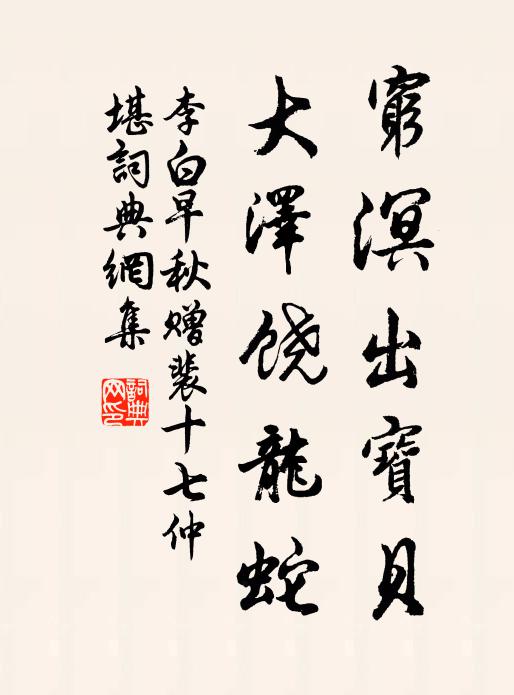 窮溟出寶貝
大澤饶龍蛇
李白早秋赠裴十七仲
堪詞典網集
詞典网印